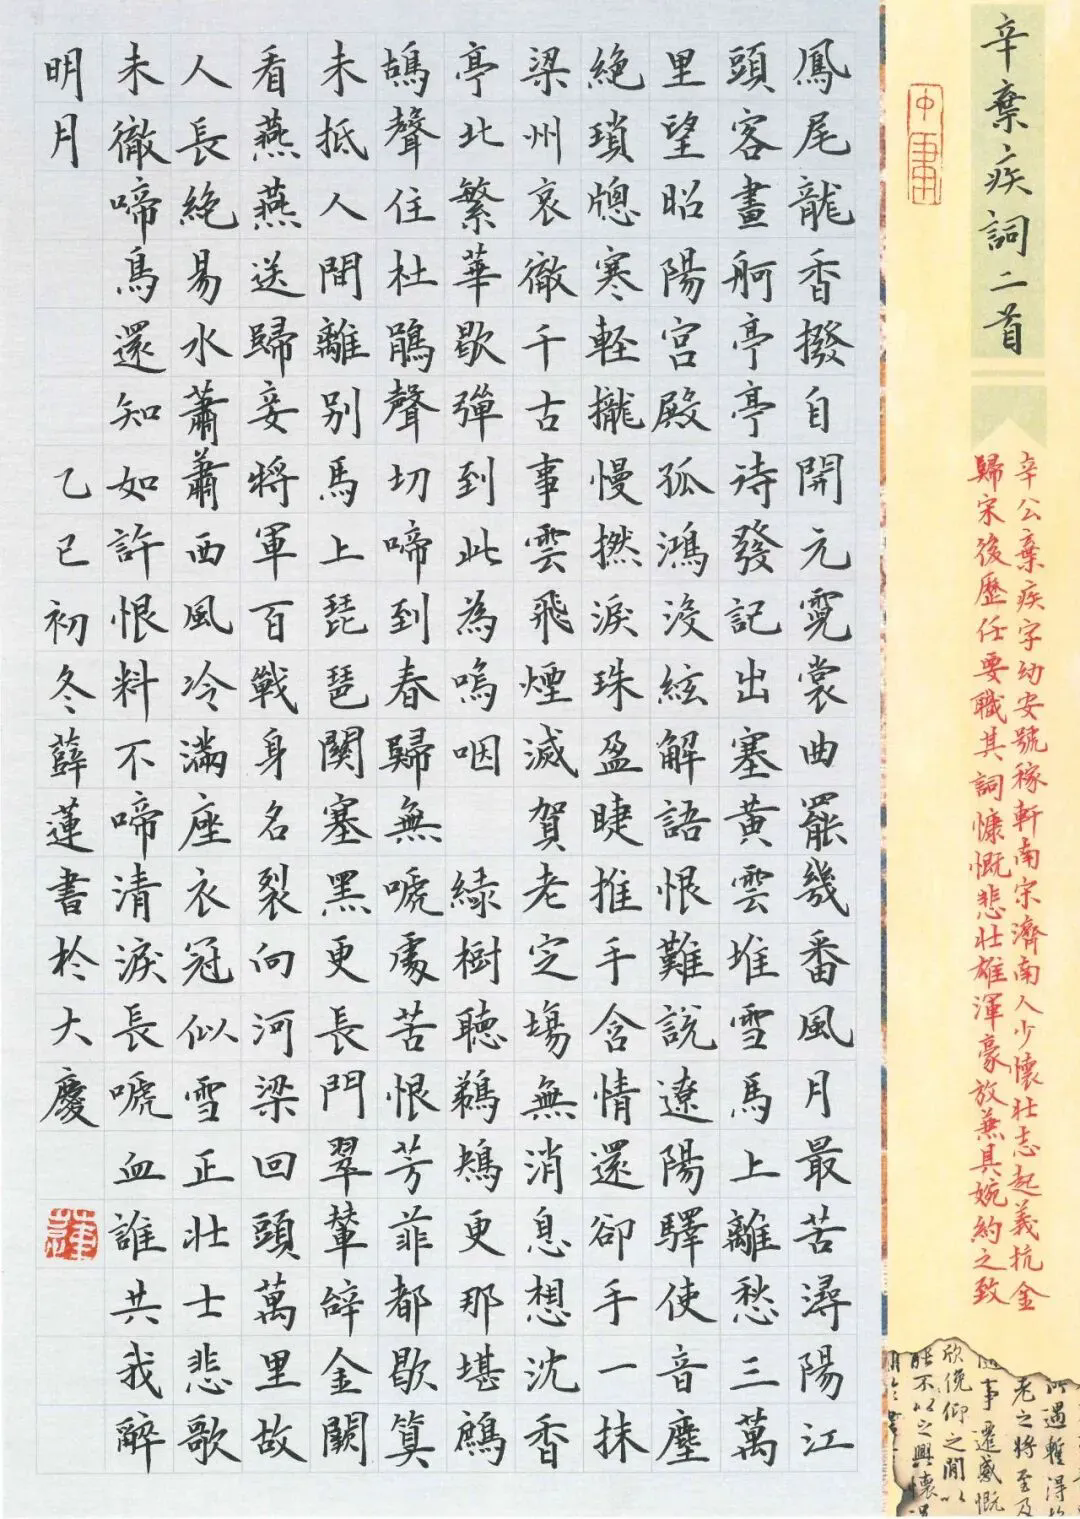 辛棄疾詞二首
辛公棄疾字幼安號稼軒南宋濟南人少懷壯志起義抗金
歸宋後歷任要職其詞慷慨悲壯雄渾豪放兼具婉約之致
遇暫得
老之將至及
事遷感慨
欣俛仰之間以
能不以之興懷
鳳尾龍香撥自開元霓裳曲罷幾番風月最苦潯陽江
頭客畫舸亭亭待發記出塞黃雲堆雪馬上離愁三萬
里望昭陽宮殿孤鴻沒絃解語恨難說遼陽驛使音塵
絕瑣牕寒輕攏慢撚淚珠盈睫推手含情還卻手一抹
梁州哀徹千古事雲飛煙滅賀老定場無消息想沈香
亭北繁華歇彈到此為嗚咽 綠樹聽鵜鴂更那堪鷓
鴣聲住杜鵑聲切啼到春歸無嗁處苦恨芳菲都歇算
未抵人間離別馬上琵琶關塞黑更長門翠輦辭金闕
看燕燕送歸妾將軍百戰身名裂向河梁回頭萬里故
人長絕易水蕭蕭西風冷滿座衣冠似雪正壯士悲歌
未徹啼鳥還知如許恨料不啼清淚長嗁血誰共我醉
明月 乙巳初冬薛蓮書於大慶